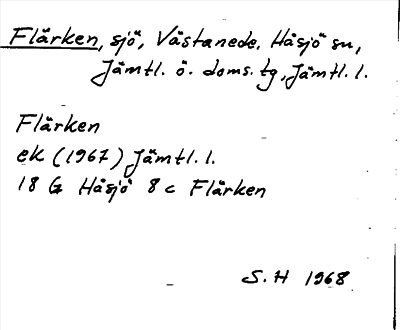 Flärken, sjö, Västanede, Håsjö sn,
Jämtl. ö. doms. tg, Jämtl. l.
Flärken
ek (1967) Jämtl. l.
18 G Håsjö 8 c Flärken
S. H 1968